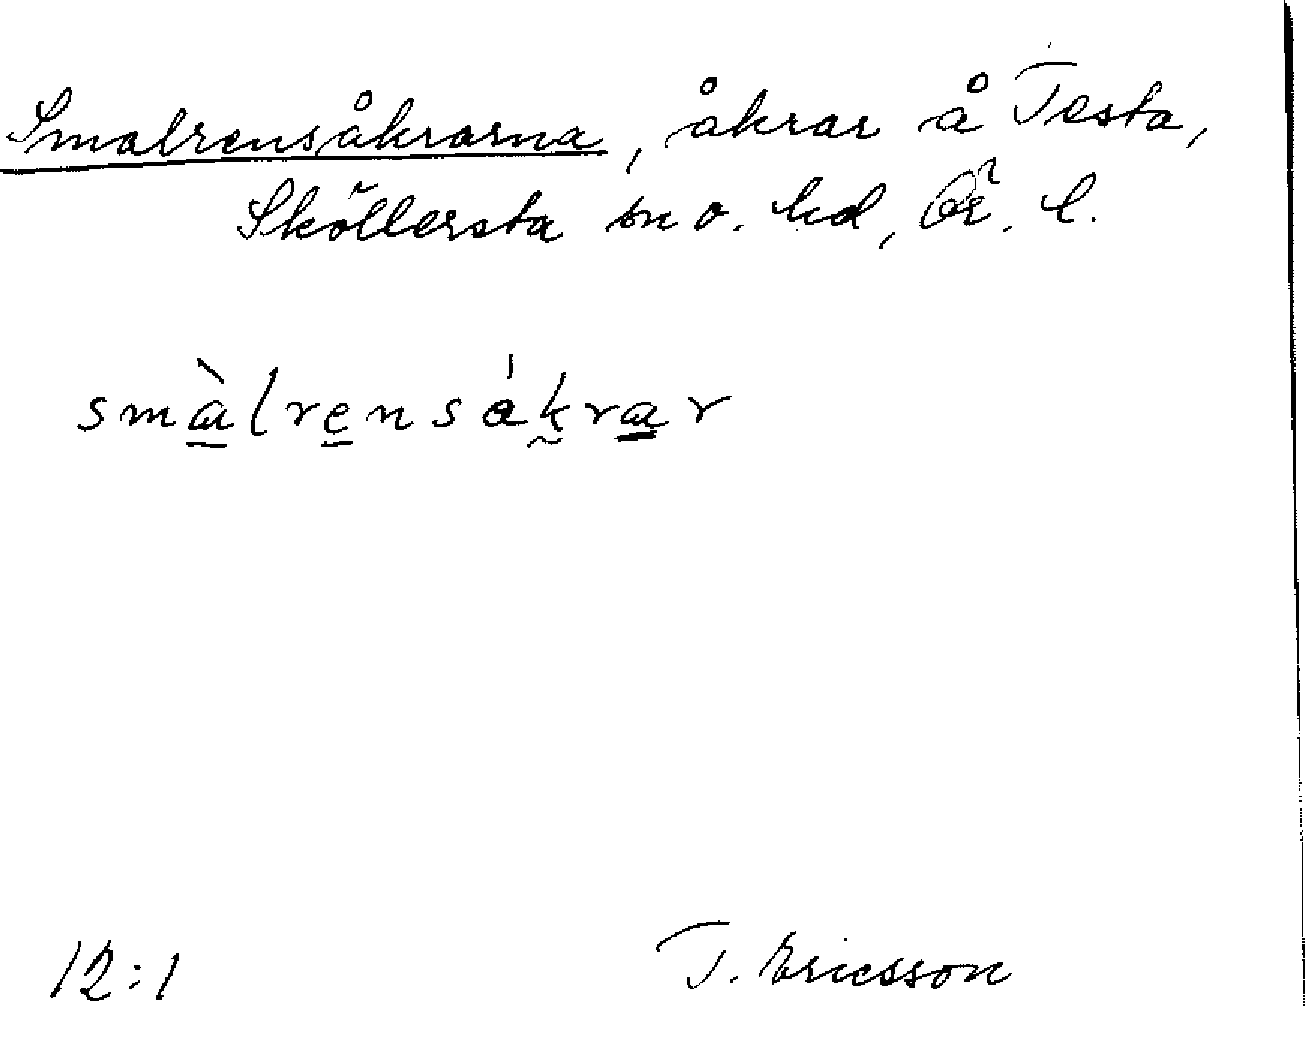 Smalrensåkrarna, åkrar å Testa,
Sköllersta sn o. hd, Ör. l.
smàlrensákrar
12:1
T. Ericsson